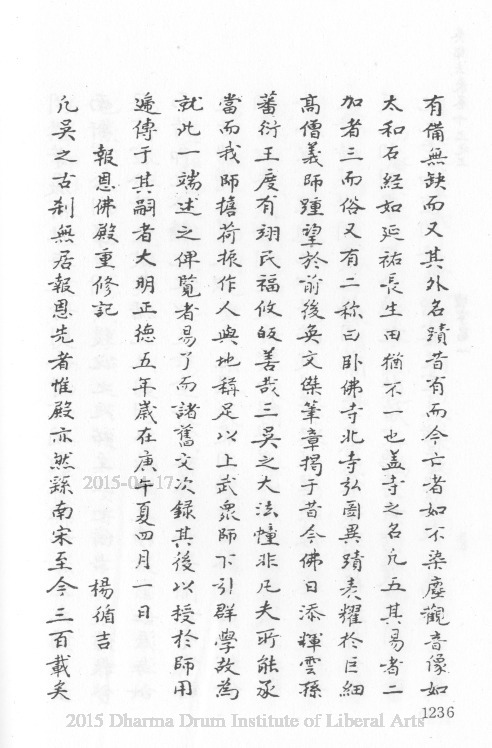 有備無缺而又其外名蹟昔有而今亡者如不染塵觀音像如
太和石經如延祐長生田猶不一也盖寺之名凡五其易者二
加者三而俗又有二称曰卧佛寺北寺弘圖異蹟表耀於巨細
高僧義師踵望於前後奐文傑筆章揭于昔今佛日添輝雲孫
蕃衍王度有翊民福攸皈善哉三吳之大法幢非凡夫所能承
當而我師擔荷振作人與地稱足以上武衆師下引群學故為
就此一端述之俾覽者易了而諸舊文次錄其後以授於師用
遞傳于其嗣者大明正德五年歲在庚午夏四月一日
報恩佛殿重修記
楊循吉
凡吳之古刹無居報恩先者惟殿亦然繇南宋至今三百載矣
2015-04-17
1236
2015 Dharma Drum Institute of Liberal Arts